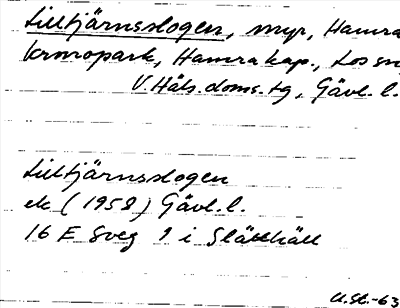 Lilltjärnsslogen, myr, Hamra
kronopark, Hamra kap., Los sn,
V. Häls. doms. tg, Gävl. l.
Lilltjärnsslogen
ek (1958) Gävl. l.
16 E Sveg 9 i Slätthäll
U.St.-63